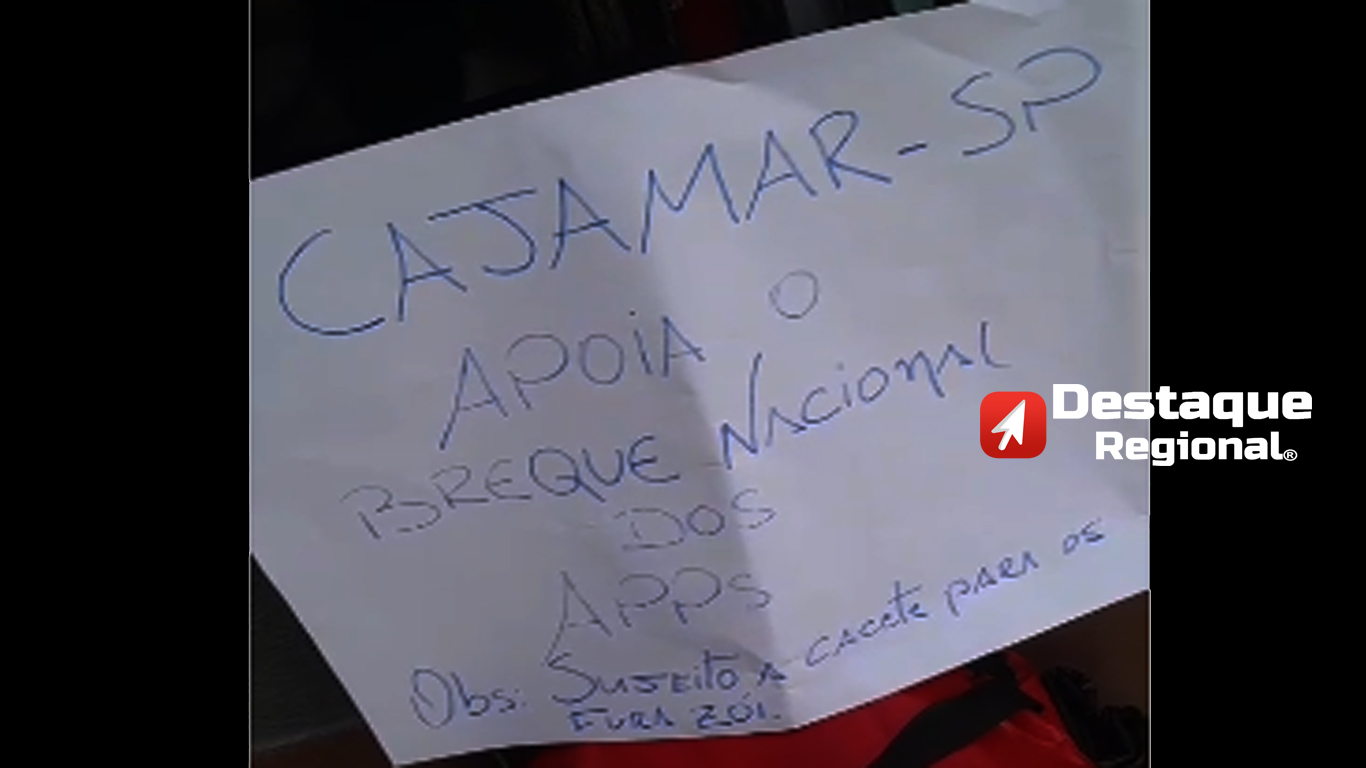 CAJAMAR-SP
APOIA O
BREQUE NACIONAL
DOS
APPS
Obs: SUJEITO A CACETE PARA OS
FURA ZÓI.
Destaque
Regional®